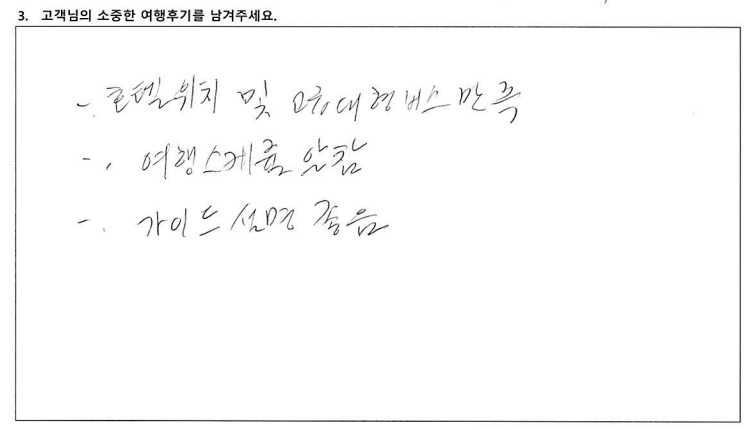 3. 고객님의 소중한 여행후기를 남겨주세요.
-. 호텔위치 및 대형버스 만족
-. 여행스케쥴 알참
-. 가이드 설명 좋음